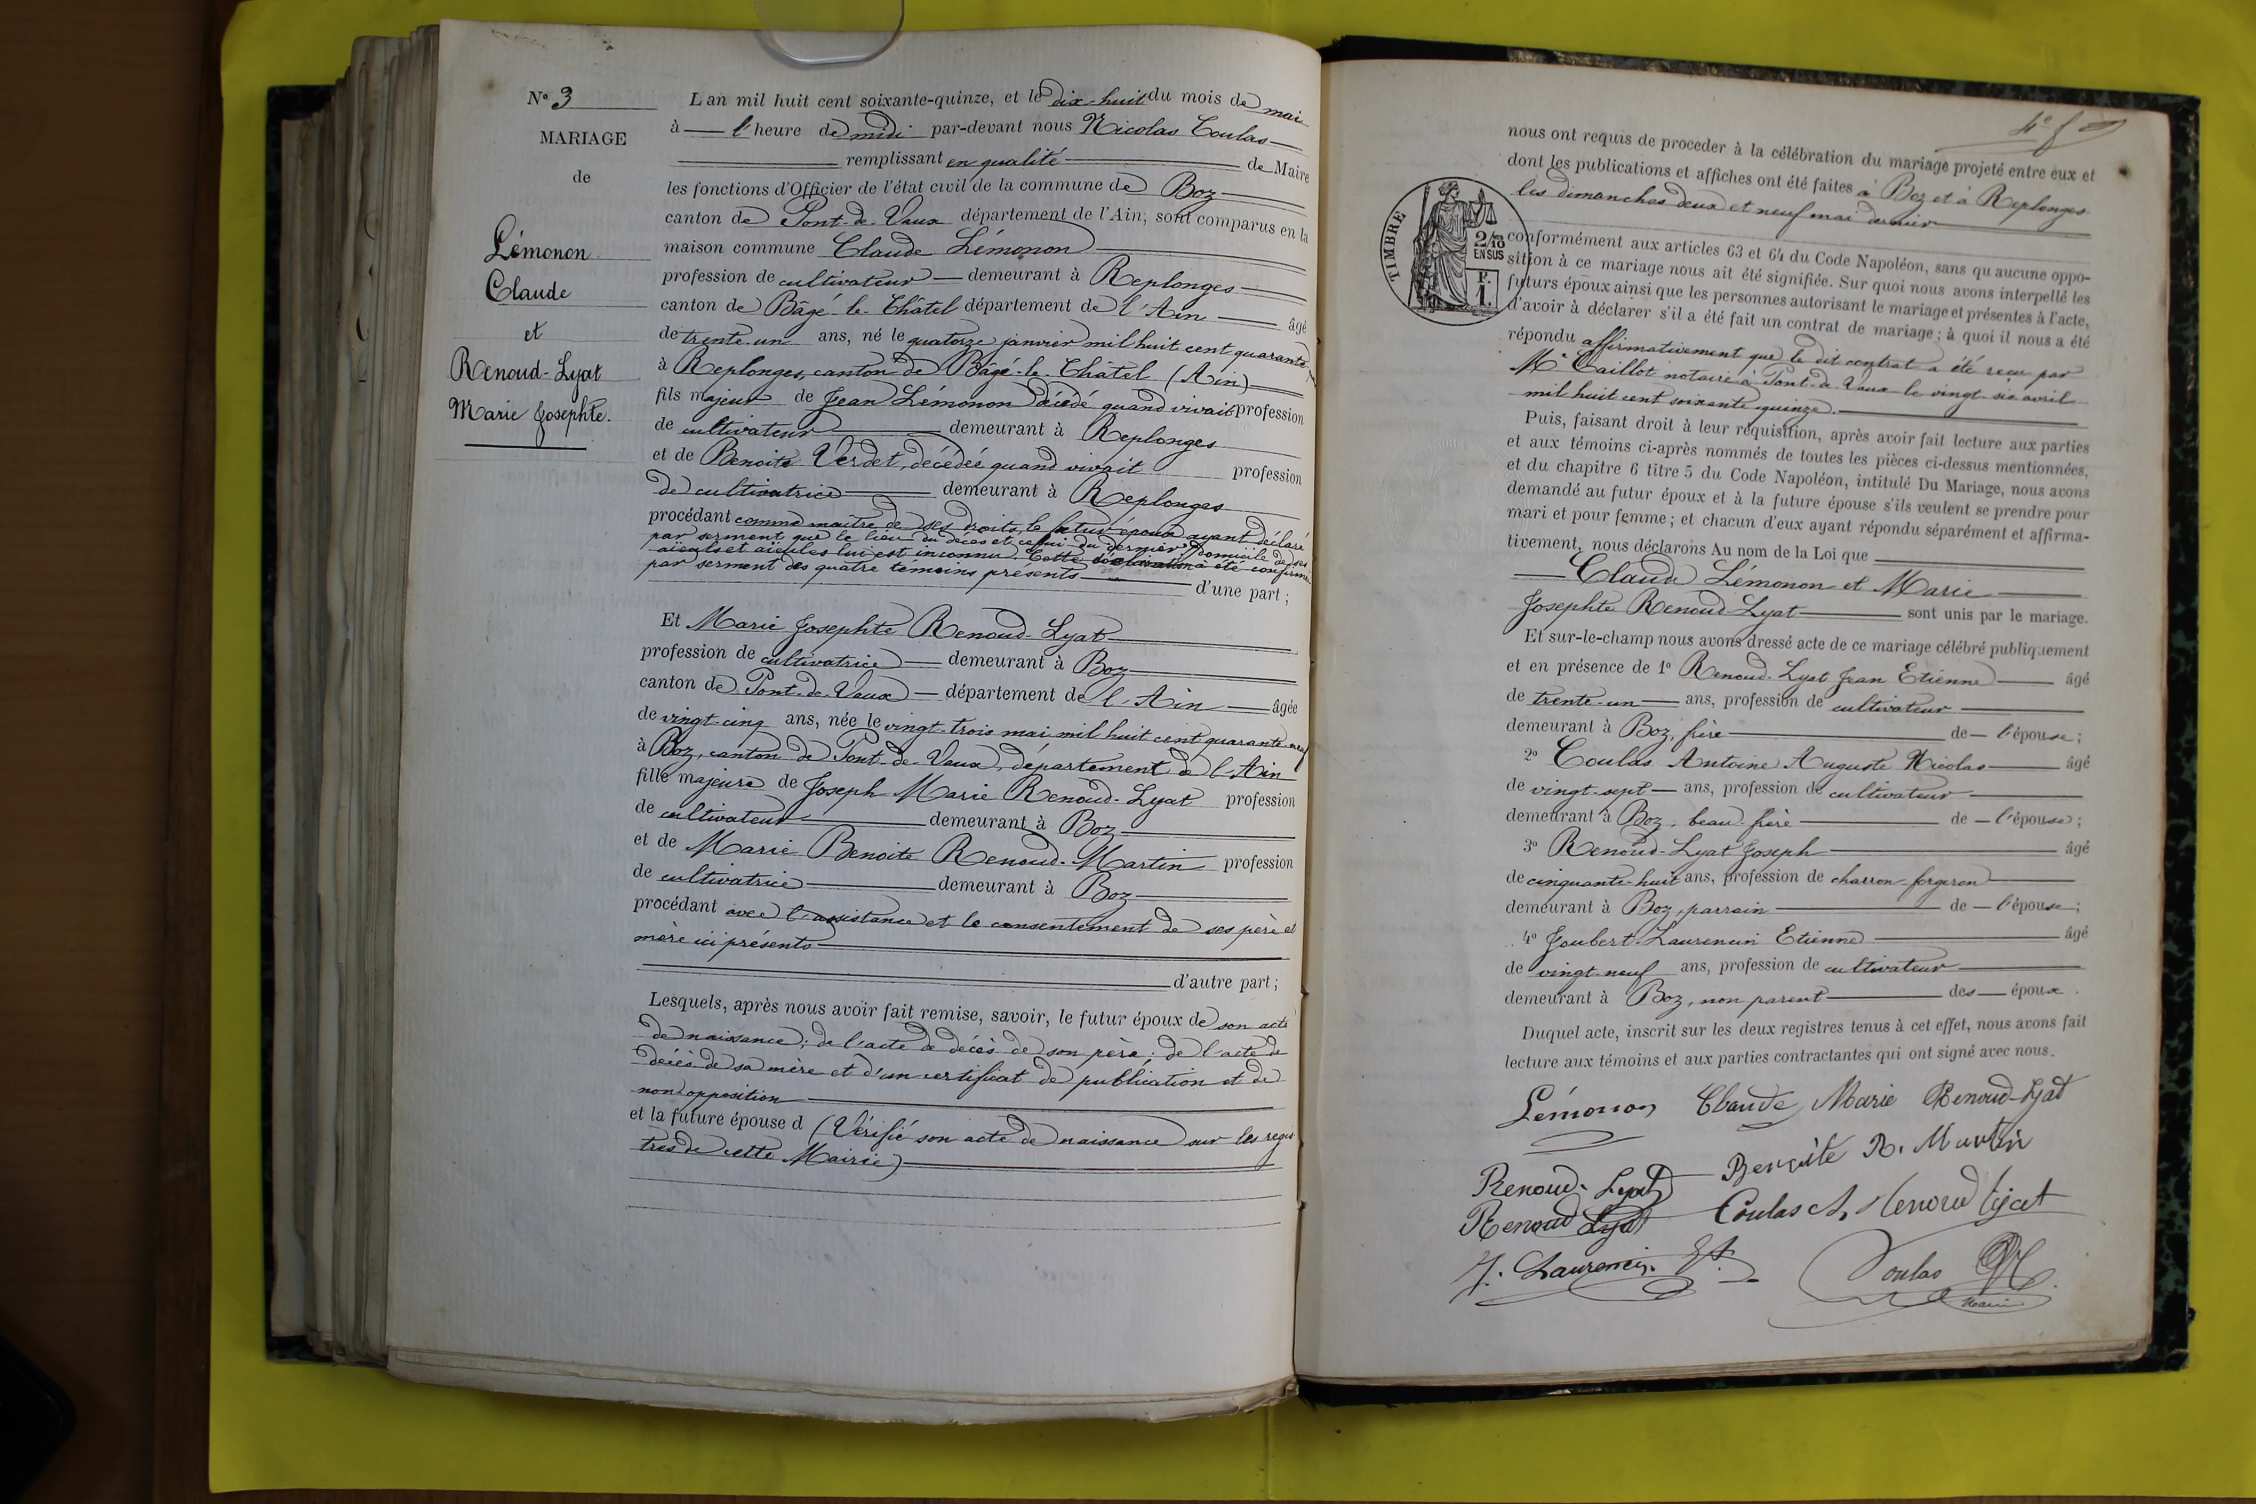 N° 3
MARIAGE
de
Lémonon
Claude
et
Renoud-Lyat
Marie Josephte.
L'an mil huit cent soixante-quinze, et le dix-huit du mois de mai
à l'heure de midi par-devant nous Nicolas Coulas
remplissant en qualité de Maire
les fonctions d'Officier de l'état civil de la commune de Boz
canton de Pont-de-Vaux département de l'Ain, sont comparus en la
maison commune Claude Lémonon
profession de cultivateur demeurant à Replonges
canton de Bâgé-le-Châtel département de l'Ain âgé
de trente-un ans, né le quatorze janvier mil huit cent quarante
à Replonges, canton de Bâgé-le-Châtel (Ain)
fils majeur de Jean Lémonon décédé quand vivait profession
de cultivateur demeurant à Replonges
et de Benoite Verdet, décédée quand vivait profession
de cultivatrice demeurant à Replonges
procédant comme maître de ses droits, le futur époux ayant déclaré
par serment que le lieu du décès et celui du dernier domicile de ses
aïeuls et aïeules lui est inconnu. Cette déclaration a été confirmée
par serment des quatre témoins présents
d'une part ;
Et Marie Josephte Renoud-Lyat
profession de cultivatrice demeurant à Boz
canton de Pont-de-Vaux département de l'Ain âgée
de vingt-cinq ans, née le vingt-trois mai mil huit cent quarante-neuf
à Boz, canton de Pont-de-Vaux, département de l'Ain
fille majeure de Joseph Marie Renoud-Lyat profession
de cultivateur demeurant à Boz
et de Marie Benoite Renoud-Martin profession
de cultivatrice demeurant à Boz
procédant avec l'assistance et le consentement de ses père et
mère ici présents
d'autre part ;
Lesquels, après nous avoir fait remise, savoir, le futur époux de son acte
de naissance ; de l'acte de décès de son père ; de l'acte de
décès de sa mère et d'un certificat de publication et de
non opposition
et la future épouse d (Vérifié son acte de naissance sur les regis
tres de cette Mairie)
4e f
nous ont requis de proceder à la célébration du mariage projeté entre eux et
dont les publications et affiches ont été faites à Boz et à Replonges
les dimanches deux et neuf mai dernier
TIMBRE
2/10
EN SUS
F.
1.
conformément aux articles 63 et 64 du Code Napoléon, sans qu aucune oppo-
sition à ce mariage nous ait été signifiée. Sur quoi nous avons interpellé les
futurs époux ainsi que les personnes autorisant le mariage et présentes à l'acte,
d'avoir à déclarer s'il a été fait un contrat de mariage ; à quoi il nous a été
répondu affirmativement que le dit contrat a été reçu par
Me Caillot notaire à Pont-de-Vaux le vingt-six avril
mil huit cent soixante quinze.
Puis, faisant droit à leur réquisition, après avoir fait lecture aux parties
et aux témoins ci-après nommés de toutes les pièces ci-dessus mentionnées,
et du chapitre 6 titre 5 du Code Napoléon, intitulé Du Mariage, nous avons
demandé au futur époux et à la future épouse s'ils veulent se prendre pour
mari et pour femme ; et chacun d'eux ayant répondu séparément et affirma-
tivement, nous déclarons Au nom de la Loi que
Claude Lémonon et Marie
Josephte Renoud-Lyat sont unis par le mariage.
Et sur-le-champ nous avons dressé acte de ce mariage célébré publiquement
et en présence de 1° Renoud-Lyat Jean Etienne âgé
de trente-un ans, profession de cultivateur
demeurant à Boz, frère de l'épouse ;
2° Coulas Antoine Auguste Nicolas âgé
de vingt-sept ans, profession de cultivateur
demeurant à Boz, beau-frère de l'épouse ;
3° Renoud-Lyat Joseph âgé
de cinquante-huit ans, profession de charron-forgeron
demeurant à Boz, parrain de l'épouse ;
4° Joubert-Laurencin Etienne âgé
de vingt-neuf ans, profession de cultivateur
demeurant à Boz, non parent des époux.
Duquel acte, inscrit sur les deux registres tenus à cet effet, nous avons fait
lecture aux témoins et aux parties contractantes qui ont signé avec nous.
Lémonon Claude Marie Renoud-Lyat
Renoud-Lyat Benoite R. Martin
Renoud Lyat Coulas A. Renoud Lyat
J. Laurencin Et. Coulas
Maire